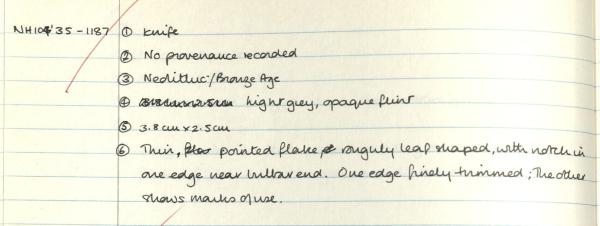 NH104'35-1187 ① Knife
② No provenance recorded
③ Neolithic/Bronze Age
④ 3.8cm x 2.5cm light grey, opaque flint
⑤ 3.8cm x 2.5cm
⑥ Thin, pointed flake, roughly leaf shaped, with notch in
one edge near bulbar end. One edge finely trimmed; The other
shows marks of use.